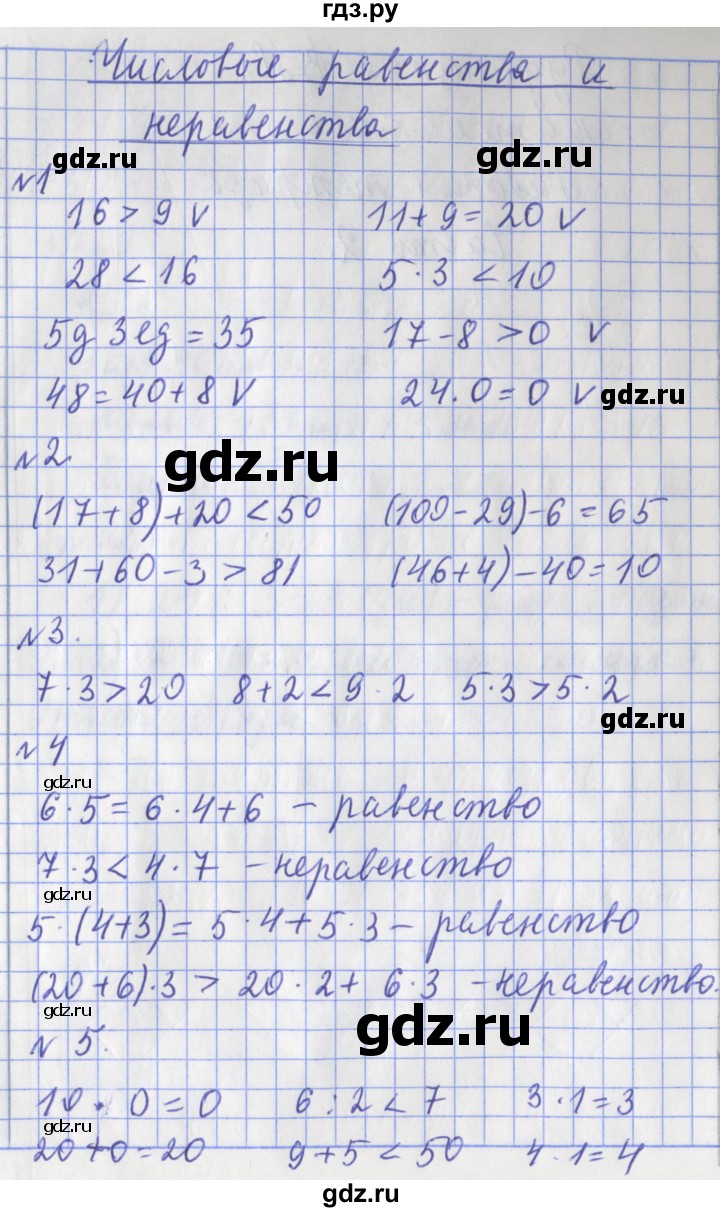 гдз.ру
Числовые равенства и
неравенства
gdz.ru gdz.ru
№1
16 > 9 v 11 + 9 = 20 v
28 < 16 5 · 3 < 10
5д 3ед = 35 17 - 8 > 0 v
48 = 40 + 8 v 24 · 0 = 0 v gdz.ru
№2. gdz.ru
(17 + 8) + 20 < 50 (100 - 29) - 6 = 65
31 + 60 - 3 > 81 (46 + 4) - 40 = 10
№3.
7 · 3 > 20 8 + 2 < 9 · 2 5 · 3 > 5 · 2
gdz.ru
№4
gdz.ru
6 · 5 = 6 · 4 + 6 - равенство
7 · 3 < 4 · 7 - неравенство
gdz.ru
5 · (4 + 3) = 5 · 4 + 5 · 3 - равенство
(20 + 6) · 3 > 20 · 2 + 6 · 3 - неравенство.
gdz.ru gdz.ru
№5.
10 · 0 = 0 6 : 2 < 7 3 · 1 = 3
gdz.ru
20 + 0 = 20 9 + 5 < 50 4 · 1 = 4
gdz.ru